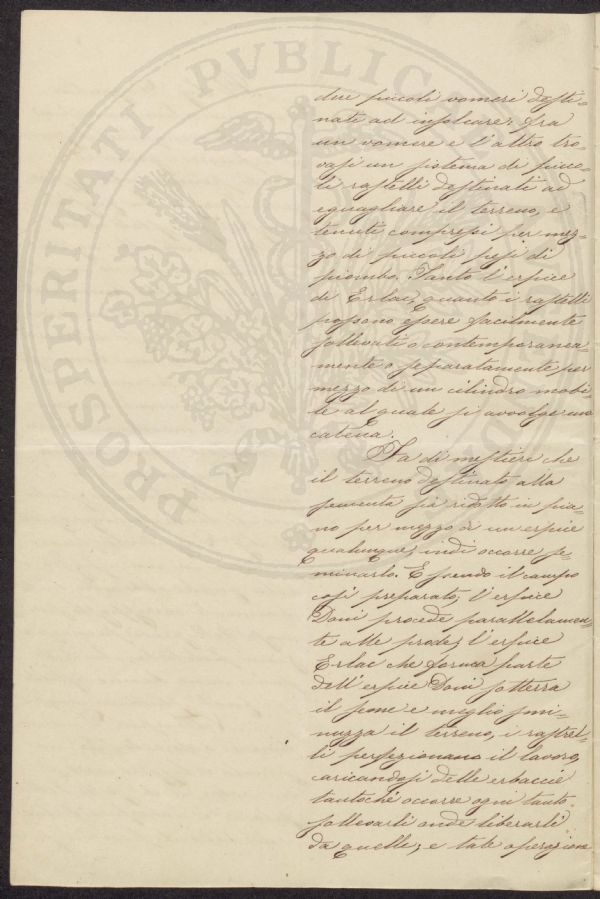 PROSPERITATI PVBLICAE
due piccoli vomeri desti=
nati ad insolcare; fra
un vomere e l'altro tro=
vasi un sistema di picco=
li rastelli destinati ad
eguagliare il terreno, e
tenuti compressi per mez=
zo di piccoli pesi di
piombo. Tanto l'erpice
di Erlac, quanto i rastelli
possono essere facilmente
sollevati o contemporanea=
mente o separatamente per
mezzo di un cilindro mobi=
le al quale si avvolge una
catena.
Fa di mestieri che
il terreno destinato alla
sementa sia ridotto in pia=
no per mezzo di un erpice
qualunque, indi occorre se=
minarlo. Essendo il campo
così preparato, l'erpice
Doni procede parallelamen=
te alle prode; l'erpice
Erlac che forma parte
dell'erpice Doni sotterra
il seme e meglio smi=
nuzza il terreno, i rastrel=
li perfezionano il lavoro,
caricandosi delle erbaccie
tantochè occorre ogni tanto
sollevarli onde liberarli
da quelle; e tale operazione